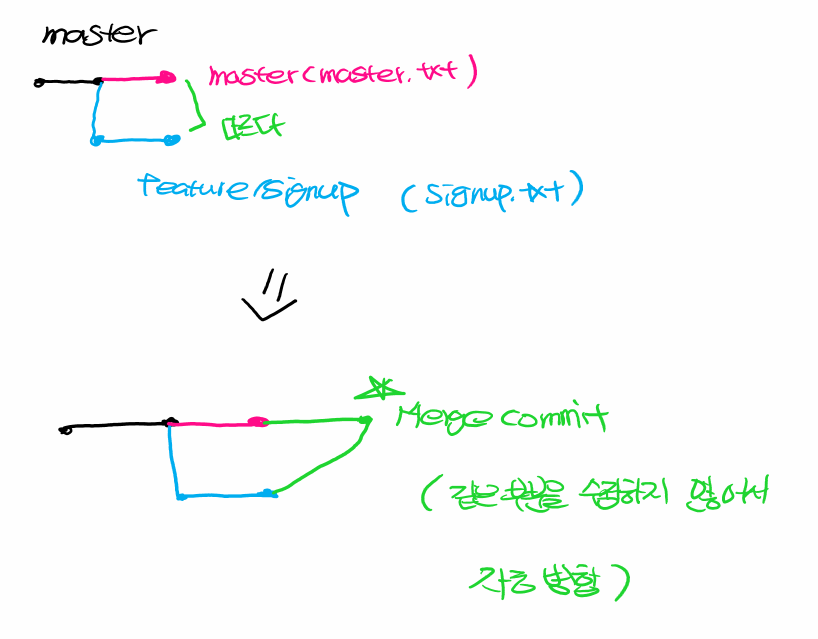 master
master (master.txt)
다르다
feature/signup (signup.txt)
Merge commit
(같은 부분을 수정하지 않아서
자동 병합)